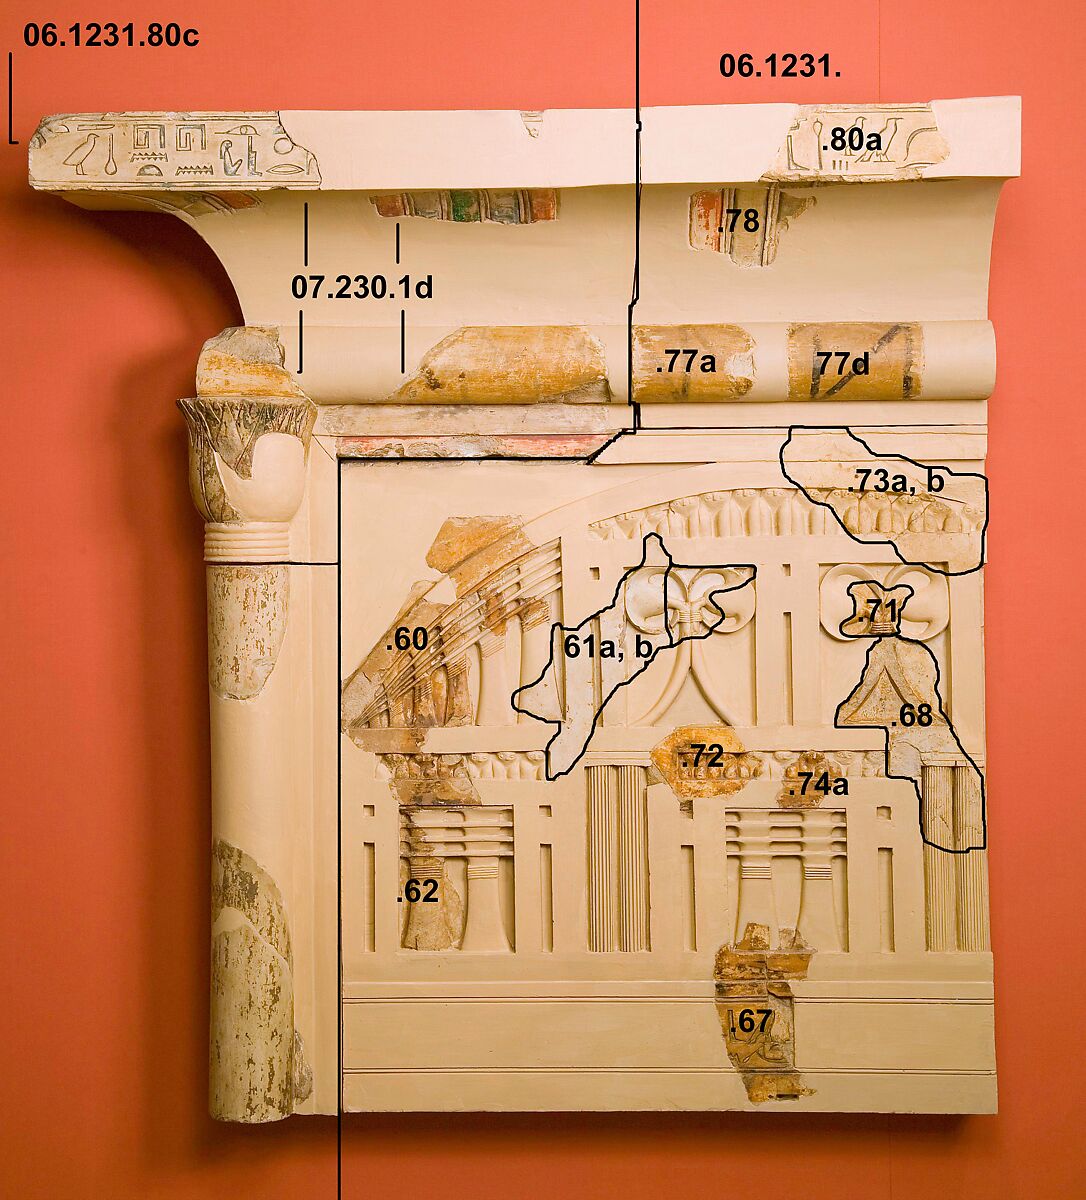 06.1231.80c
06.1231.
.80a
.78
07.230.1d
.77a
77d
.73a, b
.60
61a, b
.71
.68
.72
.74a
.62
.67